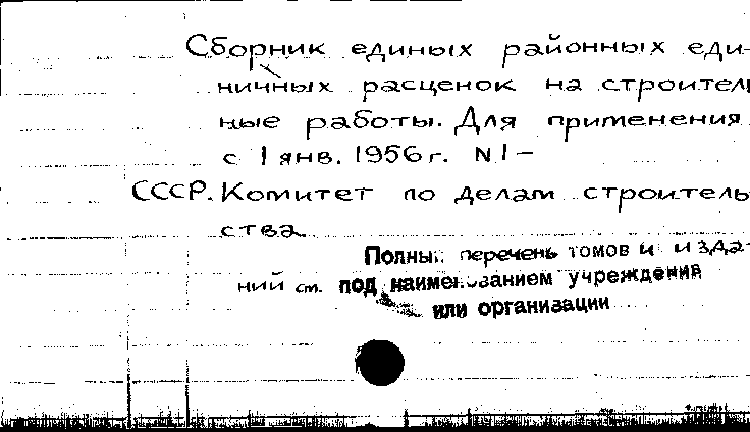 Сборник единых районных еди-
ничных расценок на строитель
ные работы. Для применения
с 1 янв. 1956 г. N 1 –
СССР. Комитет по делам строитель
ства
Полный перечень томов и изда-
ний см. под наименованием учреждения
или организации